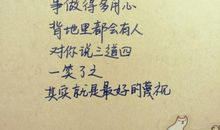 事做得多用心
背地里都会有人
对你说三道四
一笑了之
其实就是最好的蔑视